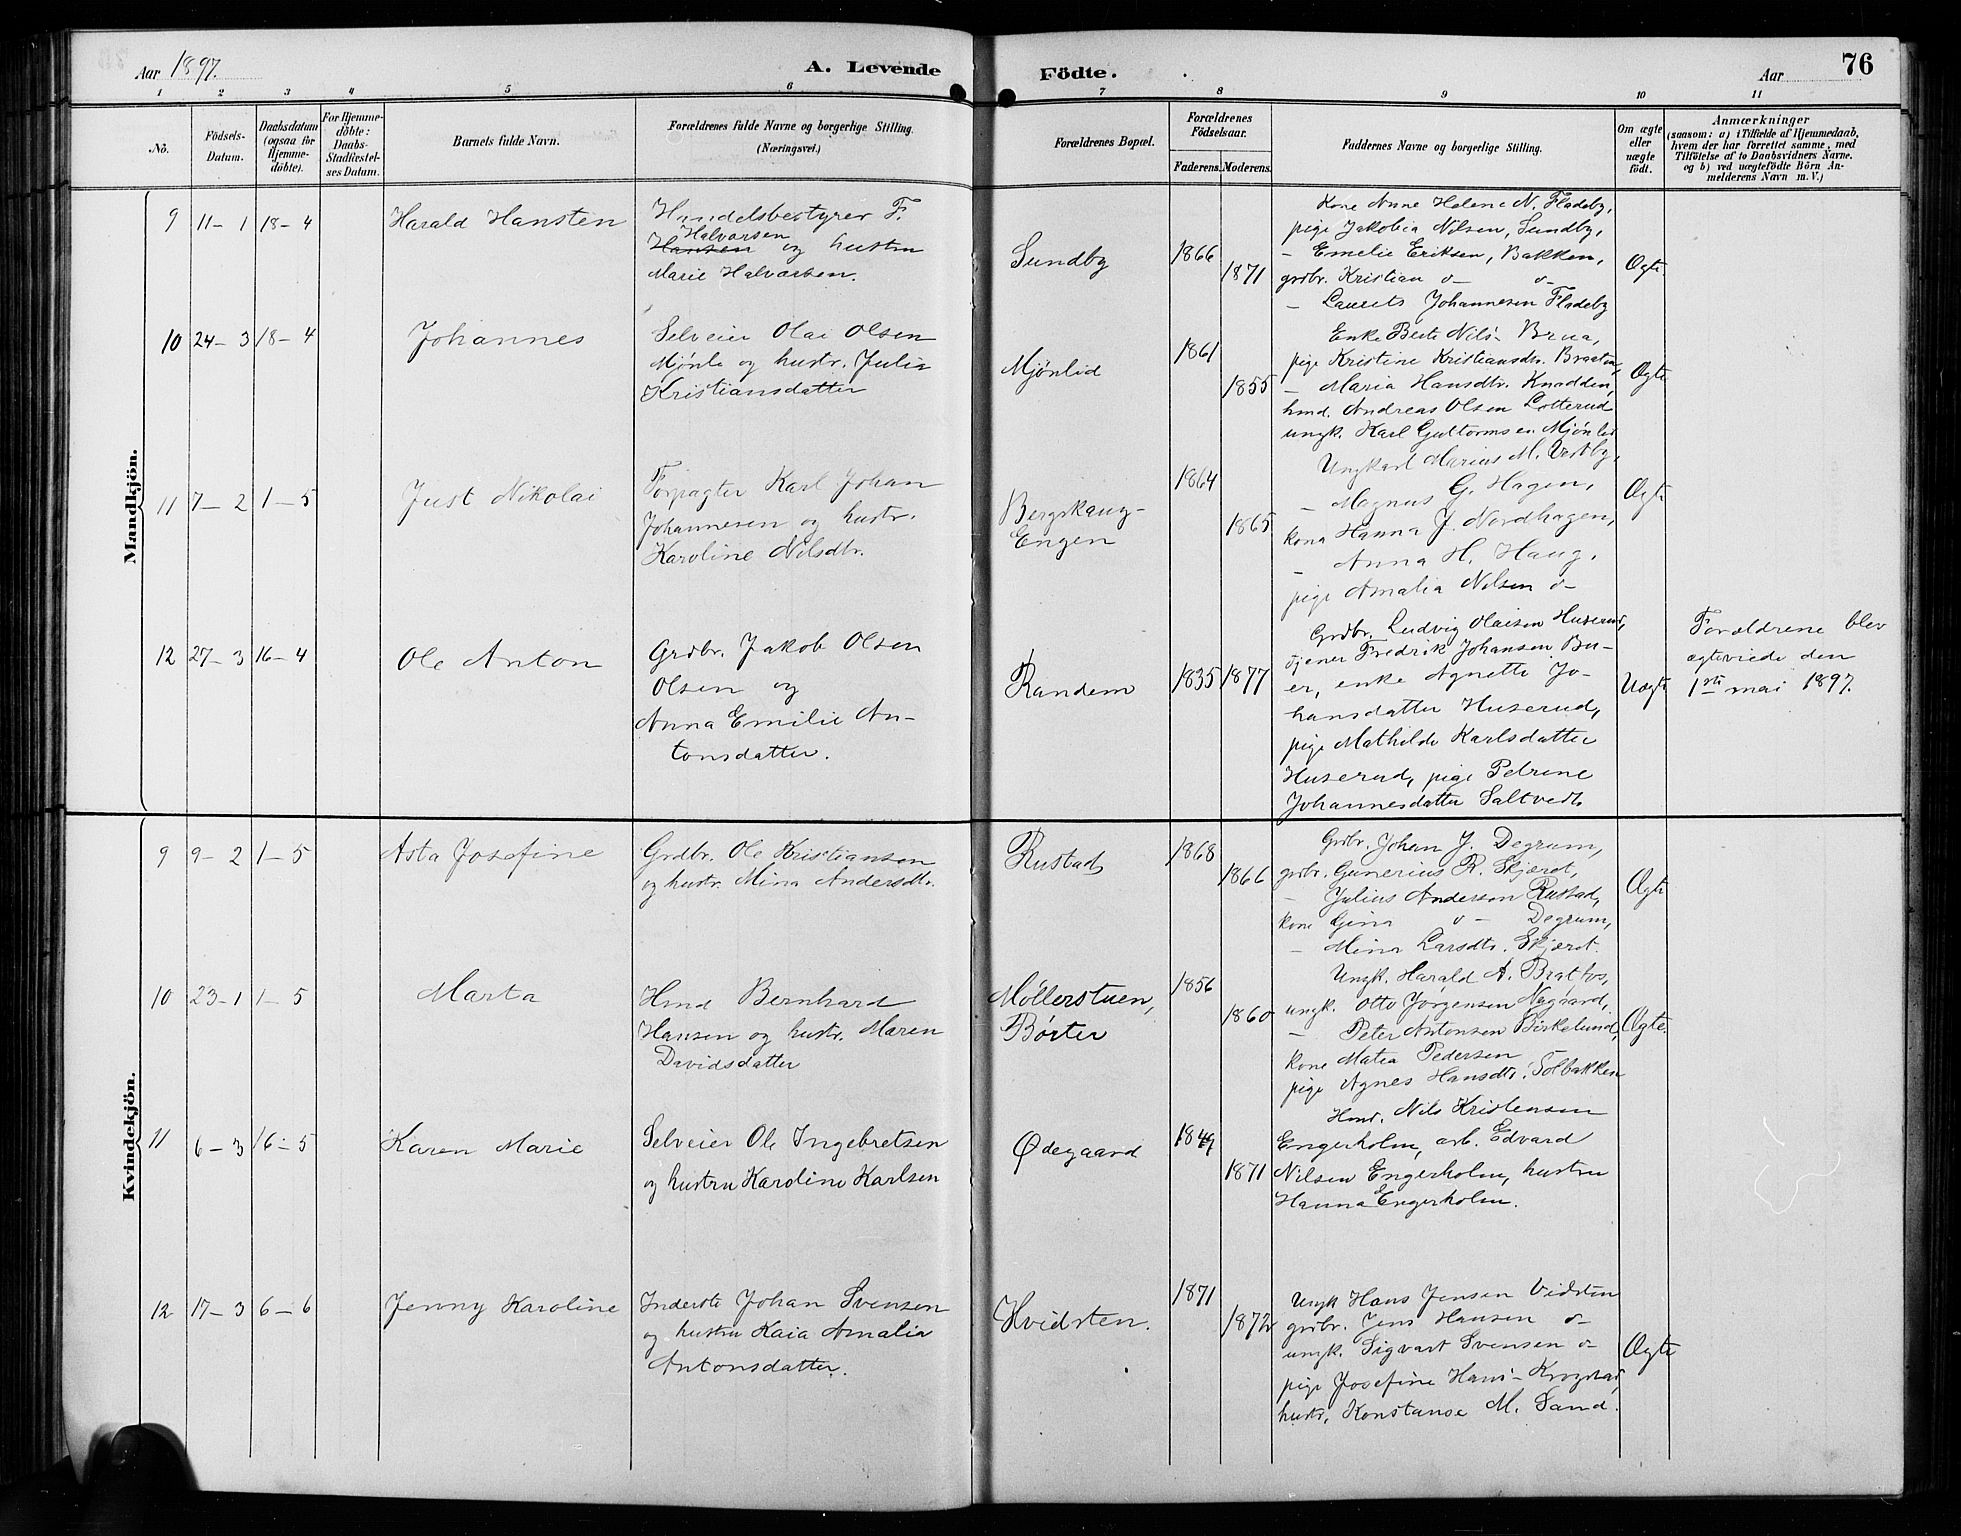 Aar 1897.
A. Levende
Födte.
Aar
76
1 2 3 4 5 6 7 8 9 10 11
No.
Födsels-Datum.
Daabsdatum (ogsaa for Hjemme-döbte).
For Hjemme-döbte: Daabs-Stadfæstel-ses Datum.
Barnets fulde Navn.
Forældrenes fulde Navne og borgerlige Stilling. (Næringsvei.)
Forældrenes Bopæl.
Forældrenes Födselsaar.
Faderens. Moderens.
Faddernes Navne og borgerlige Stilling.
Om ægte eller uægte födt.
Anmærkninger
(saasom: a) i Tilfælde af Hjemmedaab, hvem der har forrettet samme, med Tilföielse af to Daabsvidners Navne, og b) ved uægtefödte Börn An-melderens Navn m. V.)
Mandkjön.
9 11–1 18–4 Harald Hansten
Handelsbestyrer F.
Halvorsen
Hansen og hustru
Marie Halvorsen.
Sundby
1866
1871
Kone Anne Helene N. Fladeby,
pige Jakobia Nilsen, Sundby,
– Emelie Eriksen, Bakken,
grdbr. Kristian o– o–
– Laurits Johannesen Fladeby
Ægte
10 24–3 18–4 Johannes
Selveier Olai Olsen
Mjønli og hustr. Julie
Kristiansdatter
Mjønlid
1861
1855
Enke Berte Nils- Brua,
pige Kristine Kristiansdtr. Braaten,
– Maria Hansdtr. Knadden,
hmd. Andreas Olsen Lotterud
ungk. Karl Guttormsen Mjønlid
Ægte
11 7–2 1–5 Just Nikolai
Forpagter Karl Johan
Johannesen og hustr.
Karoline Nilsdtr.
Bergskaug-
Engen
1864
1865
Ungkarl Marius M. Vestby,
– Magnus G. Hagen,
kona Hanna J. Nordhagen,
– Anna H. Haug,
pige Amalia Nilsen o–
Ægte
12 27–3 16–4 Ole Anton
Grdbr. Jakob Olsen
Olsen og
Anna Emilie An-
tonsdatter.
Randem
1835 1877
Grdbr. Ludvig Olaisen Huserud,
tjener Fredrik Johansen Bu-
er, enke Agnette Jo-
hansdatter Huserud,
pige Mathilde Karlsdatter
Huserud, pige Petrine
Johannesdatter Saltvedt
Uægte
Forældrene blev
ægteviede den
1ste mai 1897.
Kvindekjön.
9 9–2 1–5 Asta Josefine
Grdbr. Ole Kristiansen
og hustr. Mina Andersdtr.
Rustad
1868
1866
Grdbr. Johan J. Degrum,
grdbr. Gunerius R. Skjæret,
– Julius Andersen Rustad,
kone Gina o– Degrum,
– Mina Larsdtr. Skjæret
Ægte
10 23–1 1–5 Marta
Hmd Bernhard
Hansen og hustr. Maren
Davidsdatter
Møllerstuen,
Børter
1856
1860
Ungk. Harald A. Bratfos,
ungk. Otto Jørgensen Nygaard,
– Peter Antonsen Birkelund,
kone Matea Pedersen
pige Agnes Hansdtr. Solbakken
Ægte.
11 6–3 16–5 Karen Marie
Selveier Ole Ingebretsen
og hustru Karoline Karlsen
Ødegaard
1849
1871
Hmd. Nils Kristensen
Engerholm, arb. Edvard
Nilsen Engerholm, hustru
Hanna Engerholm.
12 17–3 6–6 Jenny Karoline
Inderste Johan Svensen
og hustru Kaia Amalia
Antonsdatter.
Hvidsten.
1871
1872
Ungk Hans Jensen Vidsten
grdbr. Jens Hansen o–
ungk. Sigvart Svensen o–
pige Josefine Hans- Krogstad,
hustr. Konstanse M. Sand.
Ægte